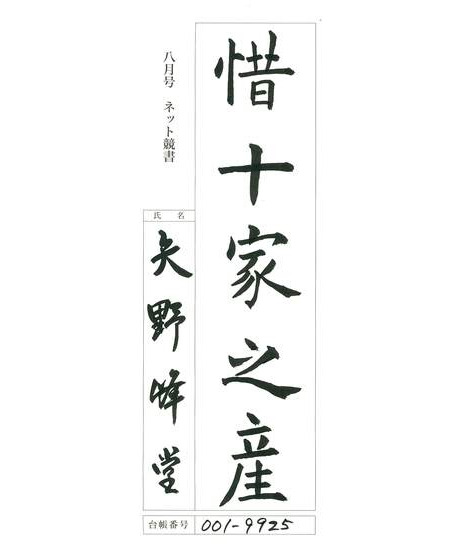 惜十家之産
八月号 ネット競書
氏名
矢野峰堂
台帳番号 001-9925